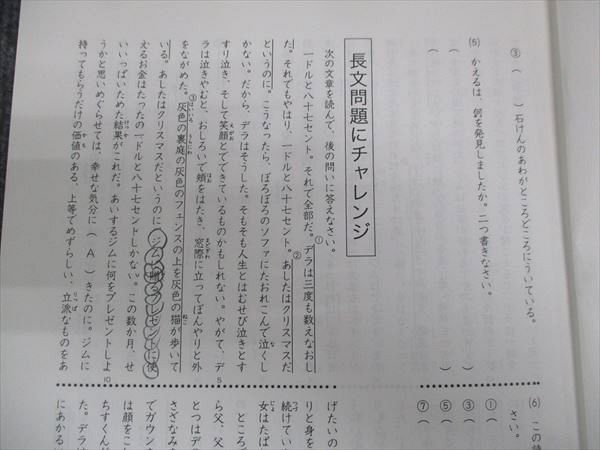 ③（　　）石けんのあわがところどころにういている。
(5) かえるは、何を発見しましたか。二つ書きなさい。
（　　）
（　　）
長文問題にチャレンジ
次の文章を読んで、後の問いに答えなさい。
一ドルと八十七セント。それで全部だ。①デラは三度も数えなおし
た。それでもやはり、一ドルと八十七セント。②あしたはクリスマスだ
というのに。こうなったら、ぼろぼろのソファにたおれこんで泣くし
かない。だから、デラはそうした。そもそも人生とはむせび泣きとす
すり泣き、そして笑顔とでできているものかもしれない。やがて、デ
ラは泣きやむと、おしろいで頬をはたき、窓際に立ってぼんやりと外
をながめた。③灰色の裏庭の灰色のフェンスの上を灰色の猫が歩いて
いる。あしたはクリスマスだというのに、ジムに贈るプレゼントに使
えるお金はたったの一ドルと八十七セントしかない。この数か月、せ
いいっぱいためた結果がこれだ。あいするジムに何をプレゼントしよ
うかと思いめぐらせては、幸せな気分に（　A　）きたのに。ジムに
持ってもらうだけの価値のある、上等でめずらしい、立派なものをあ
5
10
(6) この詩
さい。
①（
③（
⑤（
⑦（
げたいの
りと身を
続けてい
女はたば
ところで
ら父、父
とつはデ
さざなみ
でガウン
は顔をこ
ちすくん
た。デラ
にあかる